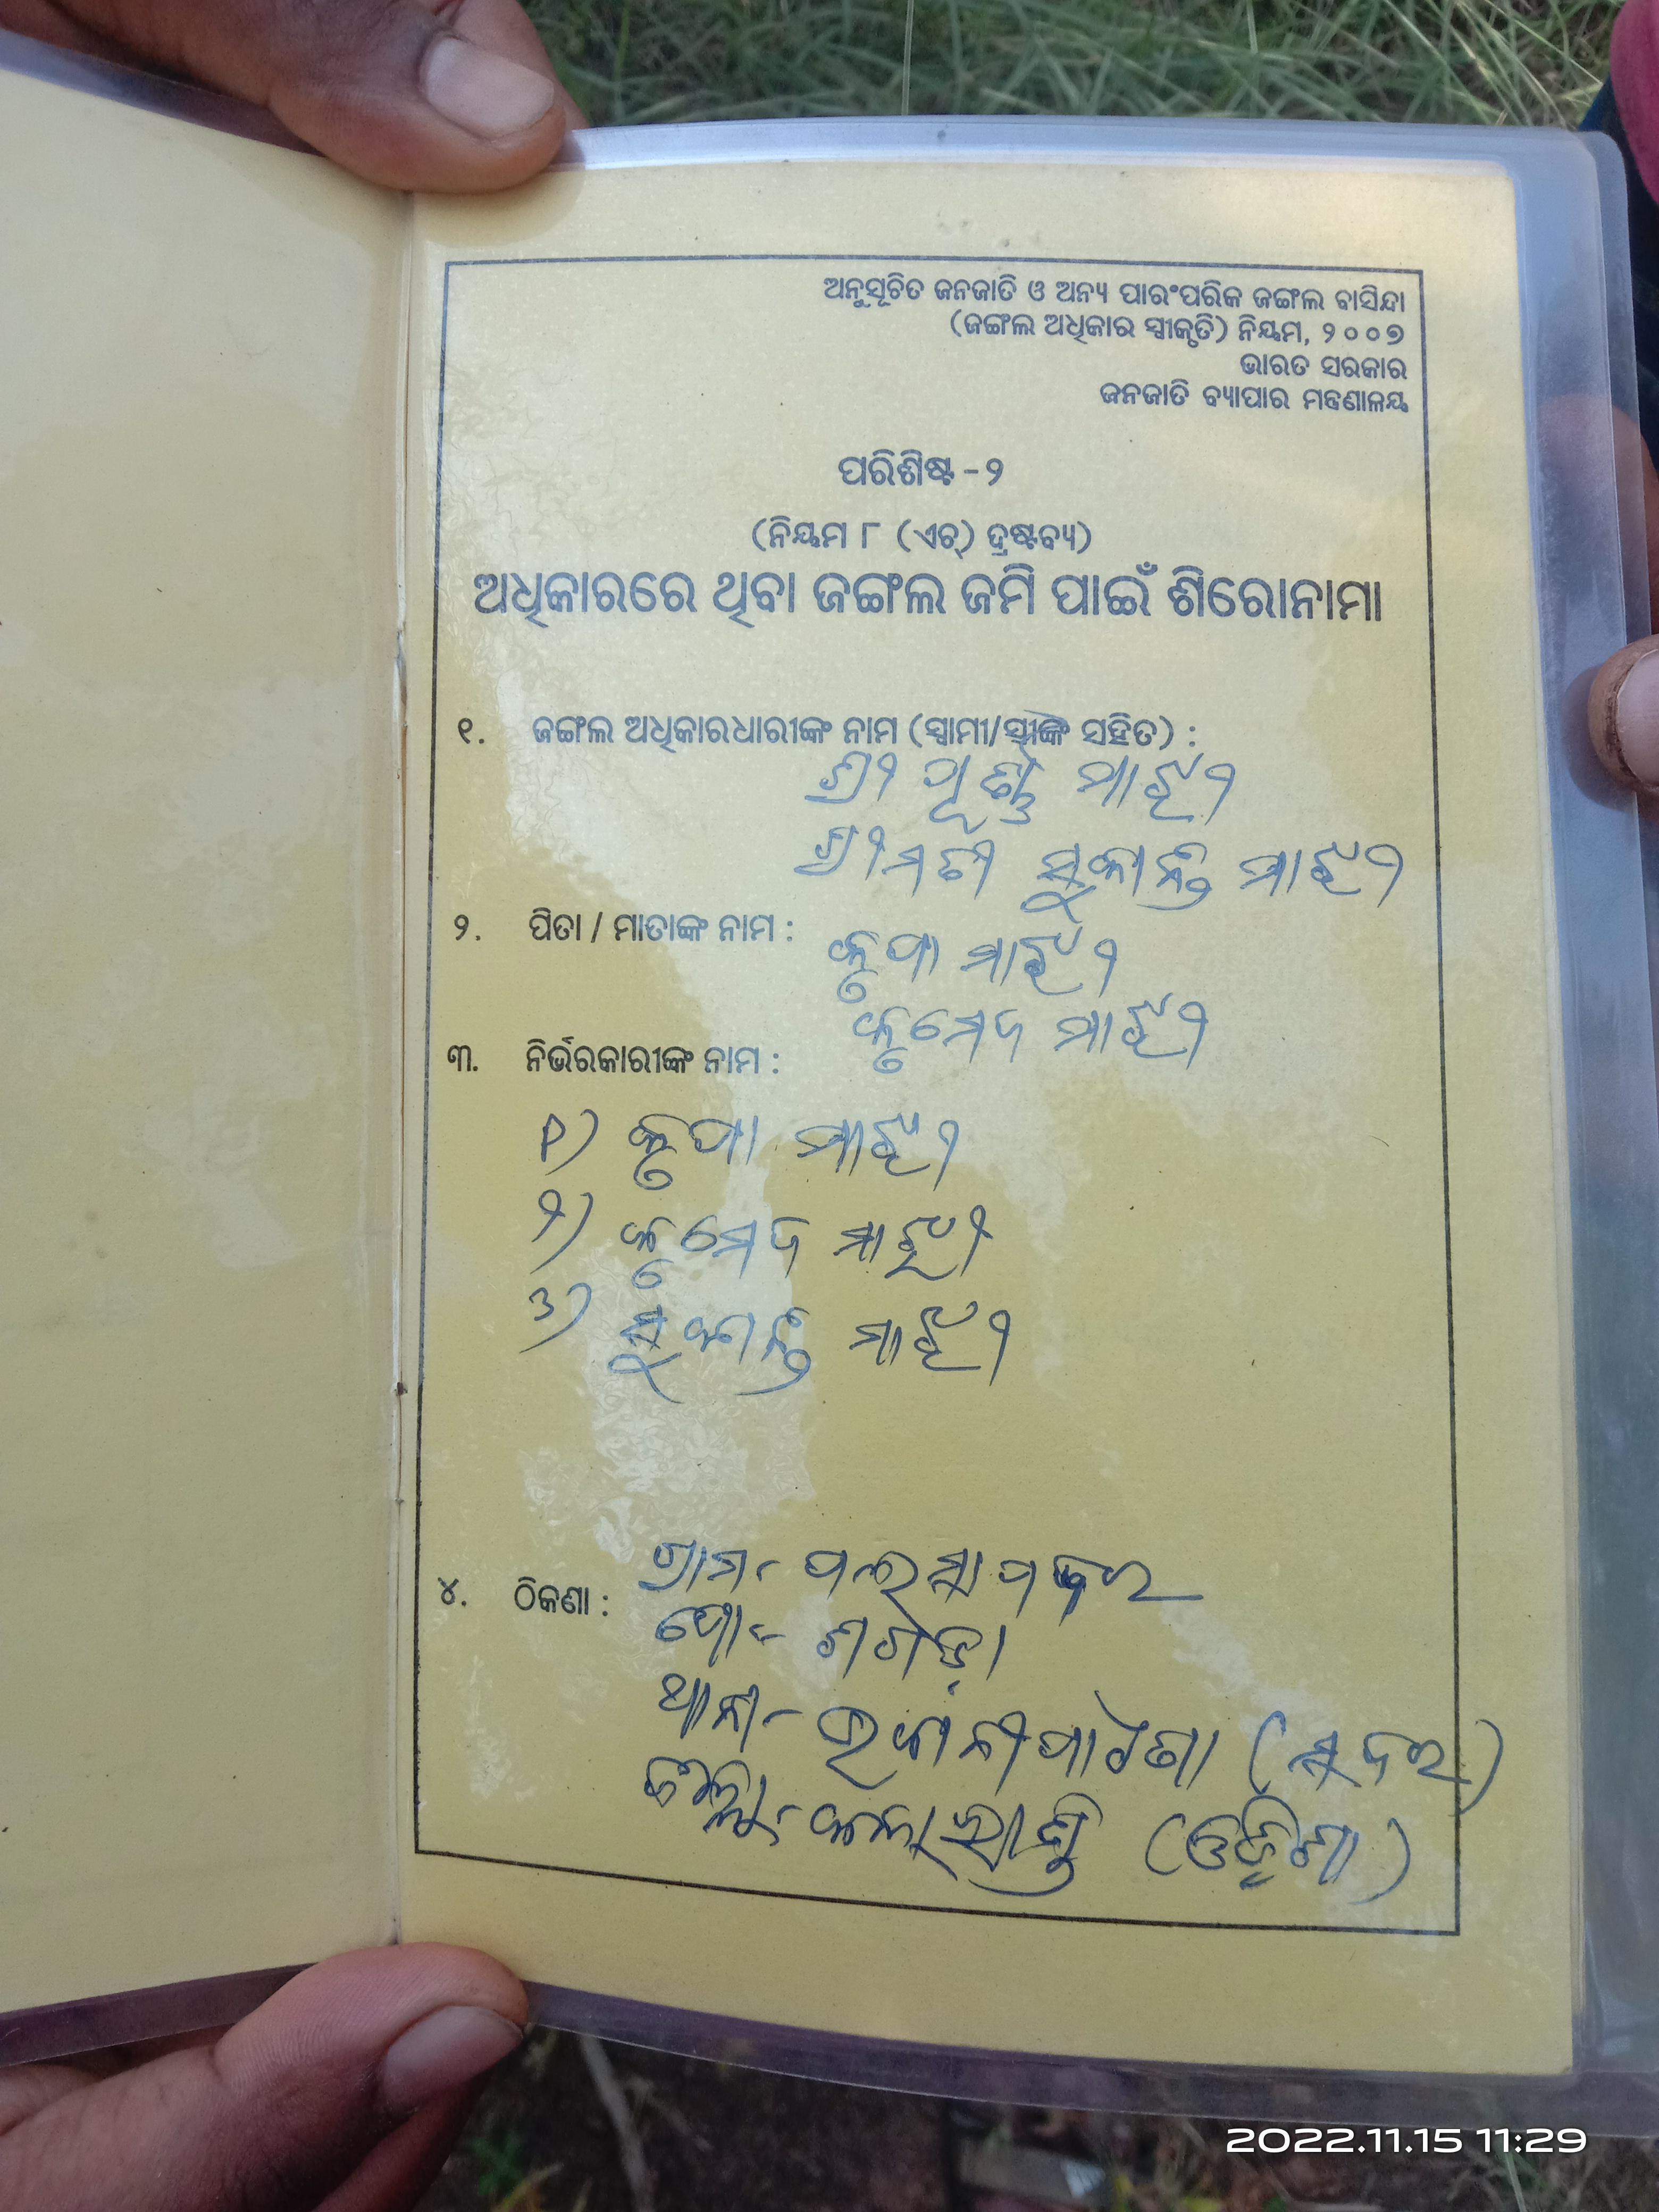 ଅନୁସୂଚିତ ଜନଜାତି ଓ ଅନ୍ୟ ପାରଂପରିକ ଜଙ୍ଗଲ ବାସିନ୍ଦା
(ଜଙ୍ଗଲ ଅଧିକାର ସ୍ୱୀକୃତି) ନିୟମ, ୨୦୦୭
ଭାରତ ସରକାର
ଜନଜାତି ବ୍ୟାପାର ମନ୍ତ୍ରଣାଳୟ
ପରିଶିଷ୍ଟ - ୨
(ନିୟମ ୮ (ଏଚ୍) ଦ୍ରଷ୍ଟବ୍ୟ)
ଅଧିକାରରେ ଥିବା ଜଙ୍ଗଲ ଜମି ପାଇଁ ଶିରୋନାମା
୧. ଜଙ୍ଗଲ ଅଧିକାରଧାରୀଙ୍କ ନାମ (ସ୍ୱାମୀ/ସ୍ତ୍ରୀଙ୍କ ସହିତ) :
ଶ୍ରୀ ପୂର୍ଣ୍ଣ ମାଝୀ
ଶ୍ରୀମତୀ ସୁକାନ୍ତି ମାଝୀ
୨. ପିତା / ମାତାଙ୍କ ନାମ :
କୃପା ମାଝୀ
ମାଝୀ
୩. ନିର୍ଭରକାରୀଙ୍କ ନାମ :
୧) କୃପା ମାଝୀ
୨) ମାଝୀ
୩) ସୁକାନ୍ତି ମାଝୀ
୪. ଠିକଣା :
ଗ୍ରାମ-
ପୋ:- ଶଗଡ଼ା
ଥାନା- ଭବାନୀପାଟଣା (ସଦର)
ଜିଲ୍ଲା- କଳାହାଣ୍ଡି (ଓଡ଼ିଶା)
2022.11.15 11:29